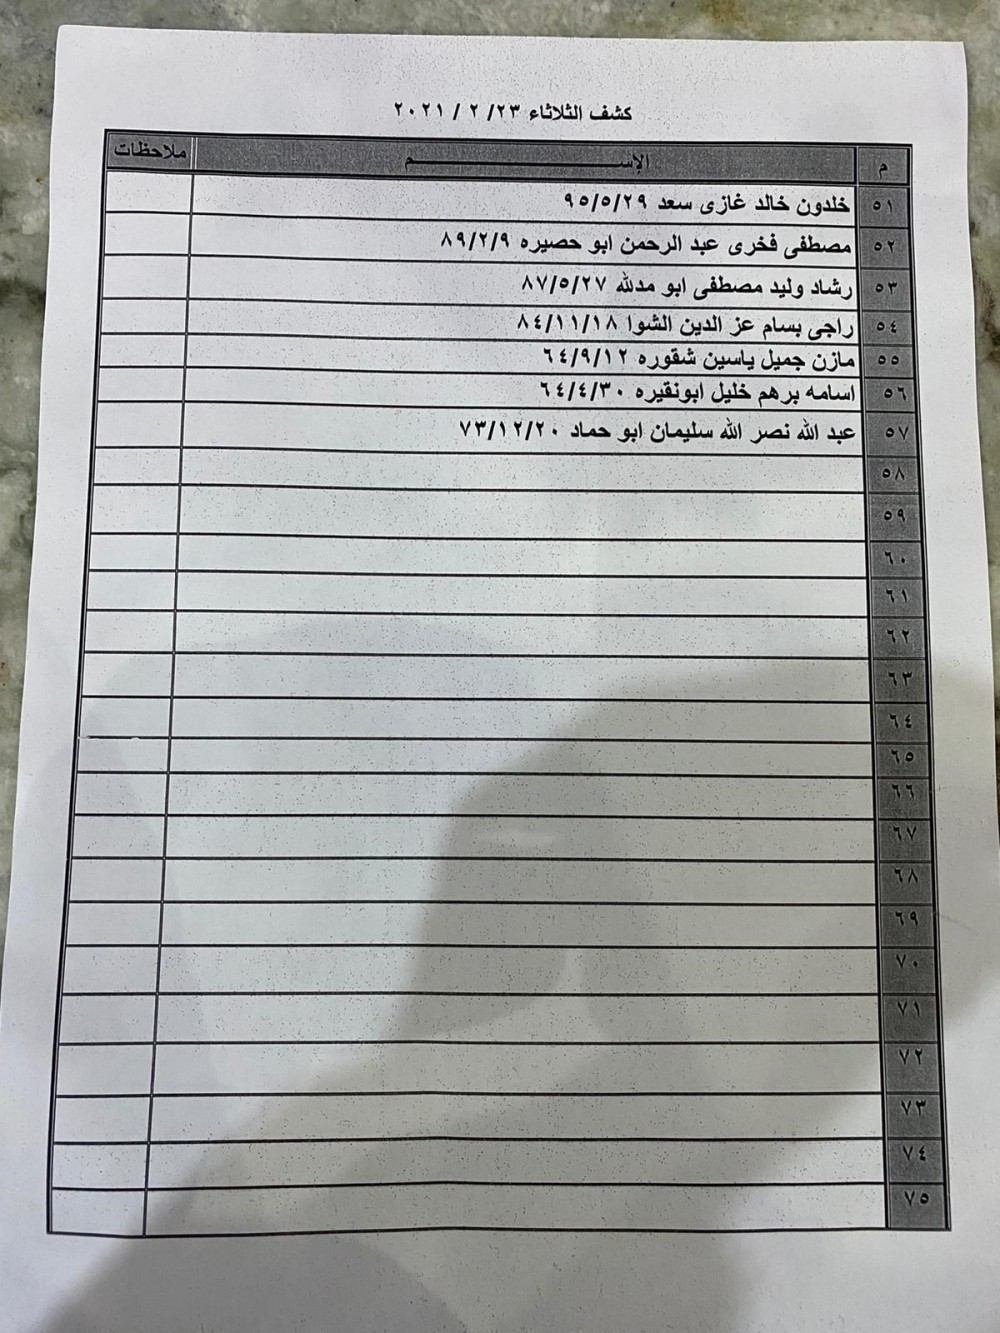 كشف الثلاثاء ٢٣/ ٢ / ٢٠٢١
م الإســـــم ملاحظات
٥١ خلدون خالد غازى سعد ٩٥/٥/٢٩
٥٢ مصطفى فخرى عبد الرحمن ابو حصيره ٨٩/٢/٩
٥٣ رشاد وليد مصطفى ابو مدلله ٨٧/٥/٢٧
٥٤ راجى بسام عز الدين الشوا ٨٤/١١/١٨
٥٥ مازن جميل ياسين شقوره ٦٤/٩/١٢
٥٦ اسامه برهم خليل ابونقيره ٦٤/٤/٣٠
٥٧ عبد الله نصر الله سليمان ابو حماد ٧٣/١٢/٢٠
٥٨
٥٩
٦٠
٦١
٦٢
٦٣
٦٤
٦٥
٦٦
٦٧
٦٨
٦٩
٧٠
٧١
٧٢
٧٣
٧٤
٧٥